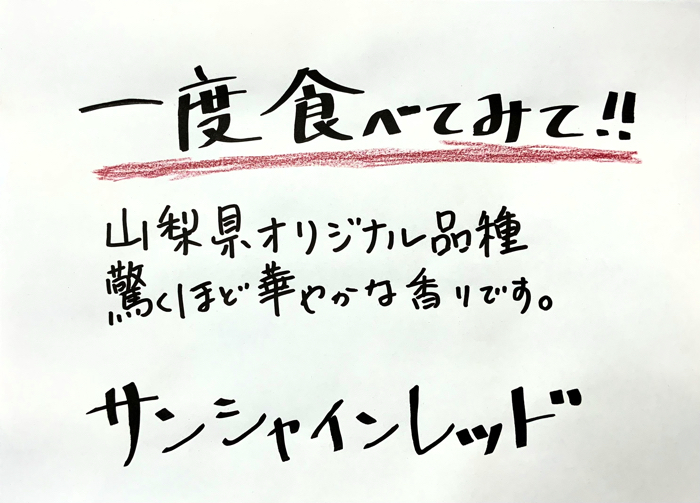 一度食べてみて!!
山梨県オリジナル品種
驚くほど華やかな香りです。
サンシャインレッド